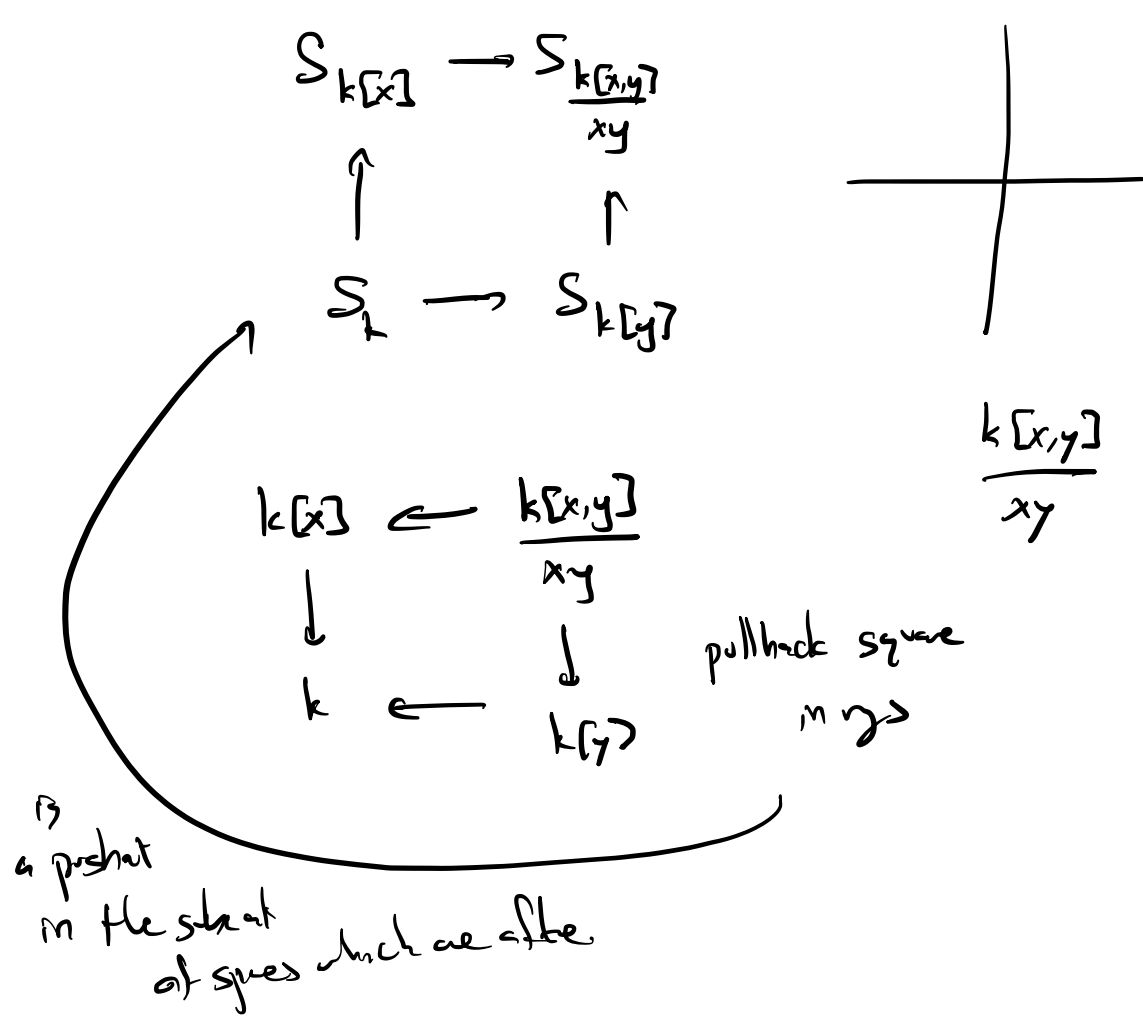 S_{k[x]} → S_{\frac{k[x,y]}{xy}}
↑ ↑
S_k → S_{k[y]}
\frac{k[x,y]}{xy}
k[x] ← \frac{k[x,y]}{xy}
↓ ↓
k ← k[y]
pullback square
in rgs
is
a pushout
in the subcat
of spces which are affine